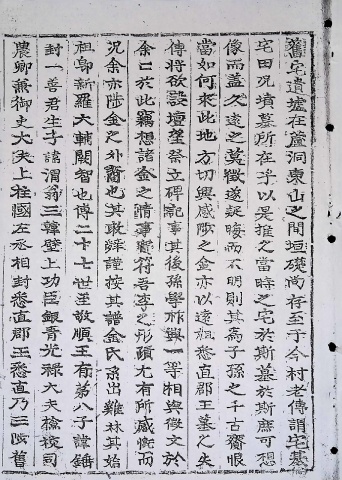 舊宅遺墟在蘆洞東山之間垣礎尚存至于今村老傳謂宅墓
宅田況墳墓所在乎以是推之當時之宅於斯墓於斯庶可想
像而蓋久遠之莫徵遂疑晦而不明則其爲子孫之千古齎恨
當如何來此地方切興感陟之金亦以遠祖悉直郡王墓之失
傳將欲設壇壝祭立碑記事其後孫學 興一等相與徵文於
余二於此竊想諸金之情事實符吾李之形頗尤有所感慨而
況余亦陟金之外裔也其敢辭謹按其譜金氏系出雞林其始
祖卽新羅大輔閼智也傳二十七世至敬順王有第八子諱錘
封一善君生子諱渭翁三韓壁上功臣銀靑光祿大夫檢校司
農卿兼御史大夫上柱國左丞相封悉直郡王悉直乃三陟舊